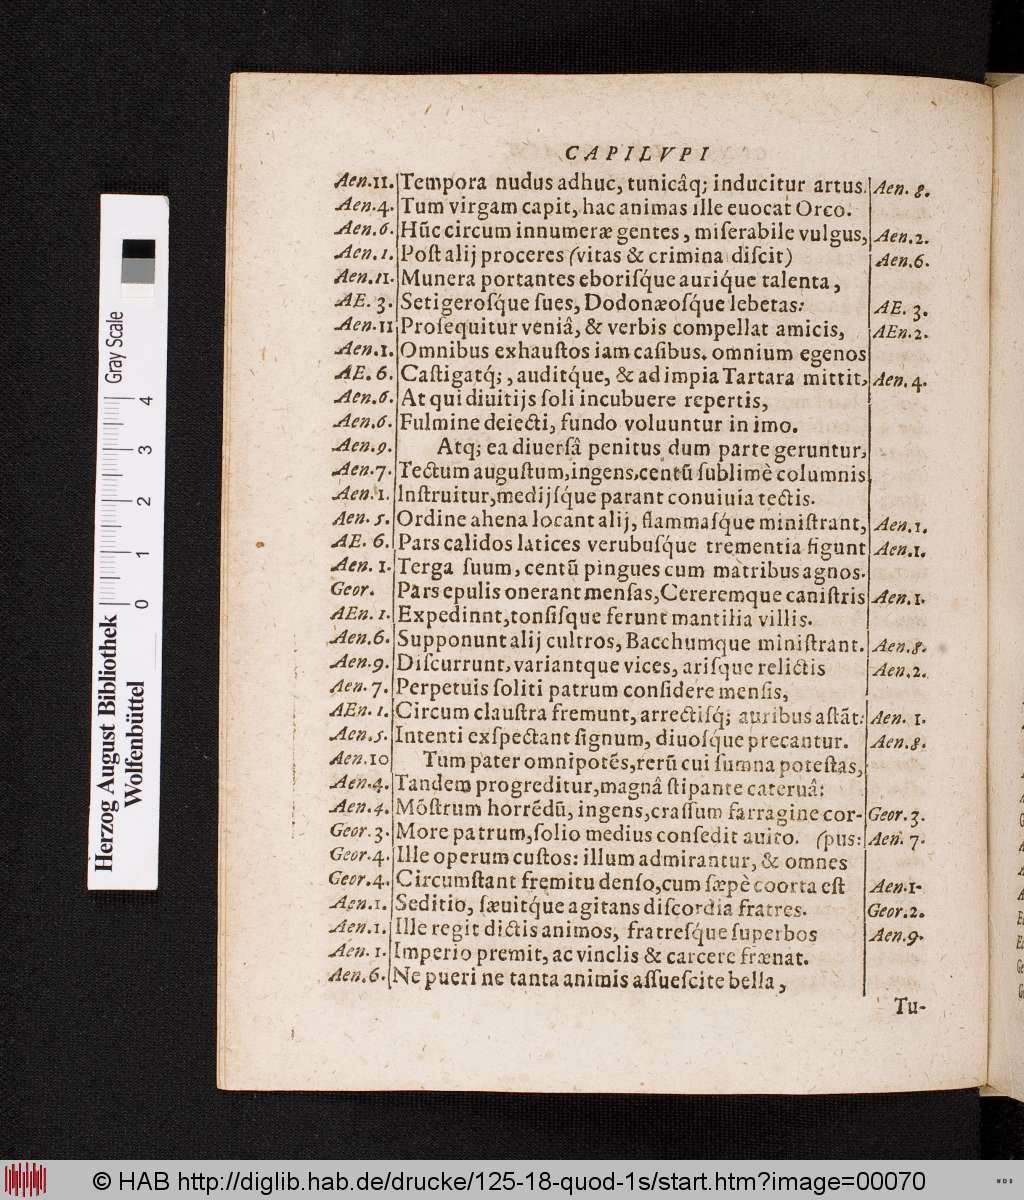 CAPILVPI
Aen.11. Tempora nudus adhuc, tunicâq; inducitur artus. Aen. 8.
Aen.4. Tum virgam capit, hac animas ille euocat Orco.
Aen.6. Hũc circum innumeræ gentes, miſerabile vulgus, Aen.2.
Aen.1. Poſt alij proceres (vitas & crimina diſcit) Aen.6.
Aen.11. Munera portantes eboriſque auríque talenta,
AE. 3. Setigeroſque ſues, Dodonæoſque lebetas: AE. 3.
Aen.11 Proſequitur veniâ, & verbis compellat amicis, AEn.2.
Aen.1. Omnibus exhauſtos iam caſibus. omnium egenos
AE. 6. Caſtigatq́;, auditque, & ad impia Tartara mittit, Aen.4.
Aen.6. At qui diuitijs ſoli incubuere repertis,
Aen.6. Fulmine deiecti, fundo voluuntur in imo.
Aen.9. Atq; ea diuerſâ penitus dum parte geruntur,
Aen.7. Tectum auguſtum, ingens, centũ ſublimè columnis
Aen.1. Inſtruitur, medijſque parant conuiuia tectis.
Aen. 5. Ordine ahena locant alij, flammaſque miniſtrant, Aen.1.
AE. 6. Pars calidos latices verubuſque trementia figunt Aen.1.
Aen. 1. Terga ſuum, centũ pingues cum matribus agnos.
Geor. Pars epulis onerant menſas, Cereremque caniſtris Aen.1.
AEn. 1. Expedinnt, tonſiſque ferunt mantilia villis.
Aen.6. Supponunt alij cultros, Bacchumque miniſtrant. Aen.8.
Aen.9. Diſcurrunt, variantque vices, ariſque relictis Aen.2.
Aen. 7. Perpetuis ſoliti patrum conſidere menſis,
AEn. 1. Circum clauſtra fremunt, arrectiſq́; auribus aſtãt: Aen. 1.
Aen.5. Intenti exſpectant ſignum, diuoſque precantur. Aen.8.
Aen.10 Tum pater omnipotẽs, rerũ cui ſumna poteſtas,
Aen.4. Tandem progreditur, magnâ ſtipante cateruâ:
Aen.4. Mõſtrum horrẽdũ, ingens, craſſum farragine cor- Geor.3.
Geor.3. More patrum, ſolio medius conſedit auito. (pus: Aen. 7.
Geor.4. Ille operum cuſtos: illum admirantur, & omnes
Geor.4. Circumſtant fremitu denſo, cum ſæpè coorta eſt Aen.1.
Aen.1. Seditio, ſæuitque agitans diſcordia fratres. Geor.2.
Aen.1. Ille regit dictis animos, fratreſque ſuperbos Aen.9.
Aen. 1. Imperio premit, ac vinclis & carcere frænat.
Aen.6. Ne pueri ne tanta animis aſſueſcite bella,
Tu-
Herzog August Bibliothek
Wolfenbüttel
Gray Scale
0 1 2 3 4
© HAB http://diglib.hab.de/drucke/125-18-quod-1s/start.htm?image=00070